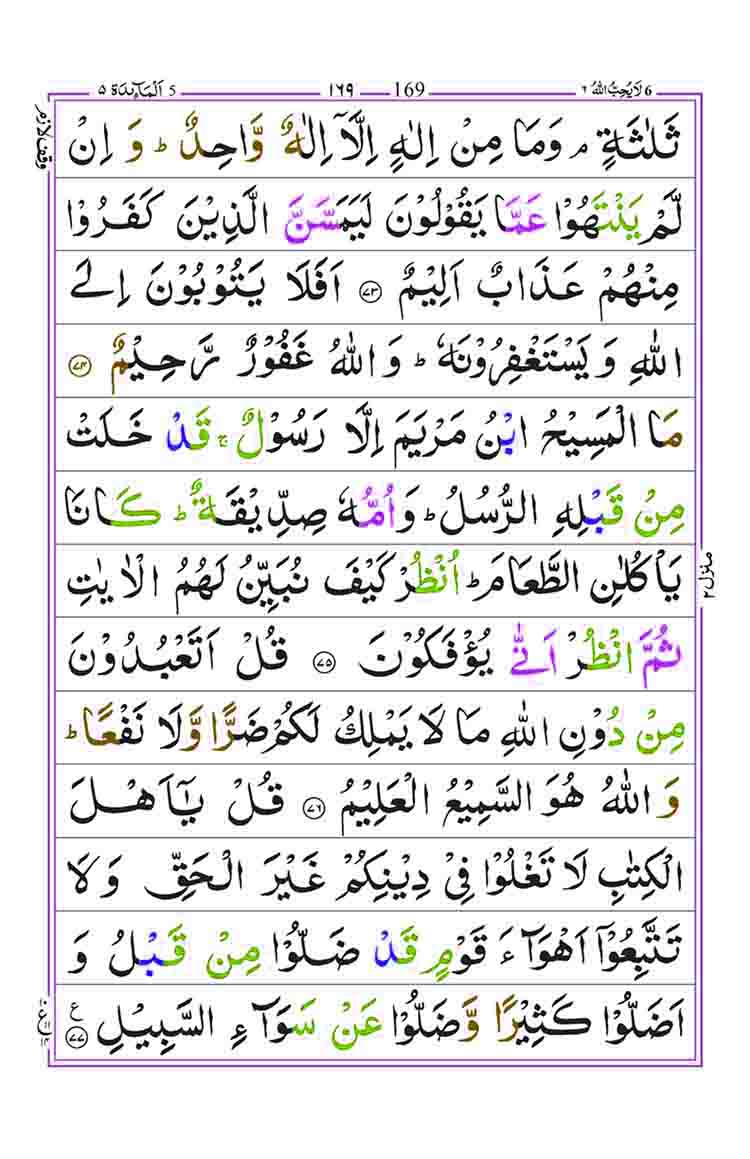 6 لَا یُحِبُّ اللّٰهُ ٦ 169 ١٦٩ 5 اَلْمَآىِٕدَة ٥
وقف لازم
ثَلٰثَةٍ ۘ وَمَا مِنْ اِلٰهٍ اِلَّاۤ اِلٰهٌ وَّاحِدٌ ؕ وَ اِنْ
لَّمْ یَنْتَهُوْا عَمَّا یَقُوْلُوْنَ لَیَمَسَّنَّ الَّذِیْنَ كَفَرُوْا
مِنْهُمْ عَذَابٌ اَلِیْمٌ ﴿٧٣﴾ اَفَلَا یَتُوْبُوْنَ اِلَی
اللّٰهِ وَ یَسْتَغْفِرُوْنَهٗ ؕ وَ اللّٰهُ غَفُوْرٌ رَّحِیْمٌ ﴿٧٤﴾
مَا الْمَسِیْحُ ابْنُ مَرْیَمَ اِلَّا رَسُوْلٌ ۚ قَدْ خَلَتْ
مِنْ قَبْلِهِ الرُّسُلُ ؕ وَ اُمُّهٗ صِدِّیْقَةٌ ؕ كَانَا
یَاْكُلٰنِ الطَّعَامَ ؕ اُنْظُرْ كَیْفَ نُبَیِّنُ لَهُمُ الْاٰیٰتِ
ثُمَّ انْظُرْ اَنّٰی یُؤْفَكُوْنَ ﴿٧٥﴾ قُلْ اَتَعْبُدُوْنَ
مِنْ دُوْنِ اللّٰهِ مَا لَا یَمْلِكُ لَكُمْ ضَرًّا وَّلَا نَفْعًا ؕ
وَ اللّٰهُ هُوَ السَّمِیْعُ الْعَلِیْمُ ﴿٧٦﴾ قُلْ یٰۤاَهْلَ
الْكِتٰبِ لَا تَغْلُوْا فِیْ دِیْنِكُمْ غَیْرَ الْحَقِّ وَلَا
تَتَّبِعُوْۤا اَهْوَآءَ قَوْمٍ قَدْ ضَلُّوْا مِنْ قَبْلُ وَ
اَضَلُّوْا كَثِیْرًا وَّضَلُّوْا عَنْ سَوَآءِ السَّبِیْلِ ﴿٧٧﴾ ع
منزل ٢